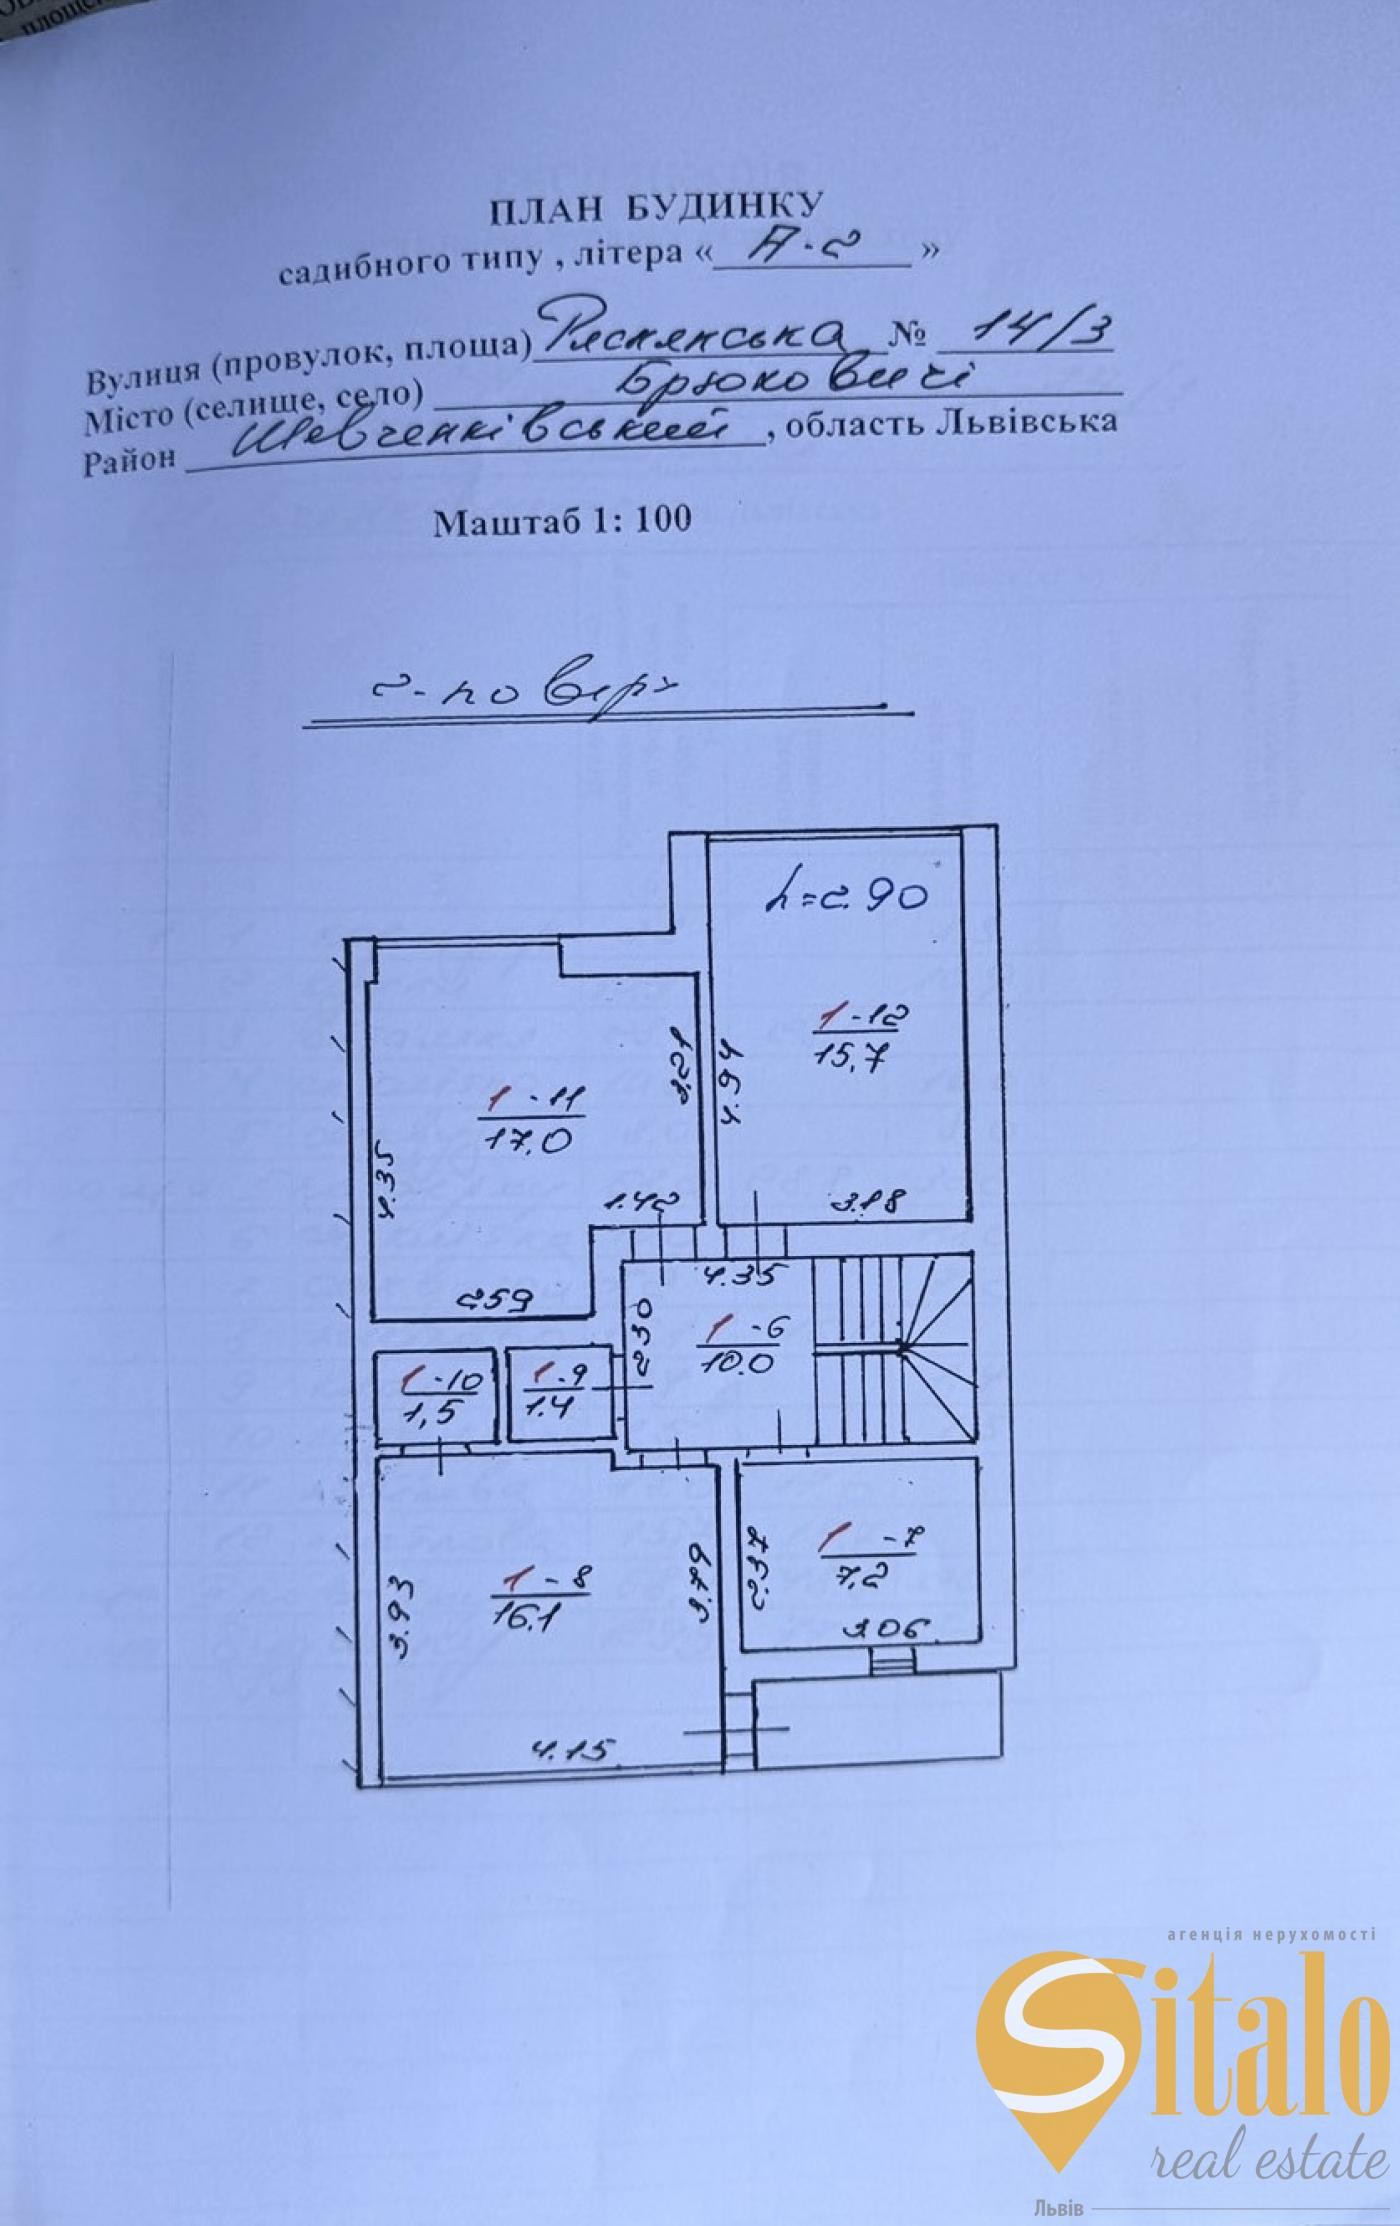 площе
ПЛАН БУДИНКУ
садибного типу , літера « А-2 »
Вулиця (провулок, площа) Ряснянська № 14/3
Місто (селище, село) Брюховичі
Район Шевченківський, область Львівська
Маштаб 1: 100
2-поверх
h=2.90
1-12
15,7
4.94
3.18
1-11
17,0
3.21
4.35
1.42
2.59
4.35
2.30
1-6
10.0
1-10
1,5
1-9
1.4
1-8
16.1
3.93
3.79
4.15
1-7
7,2
2.37
3.06
агенція нерухомості
Sitalo
real estate
Львів